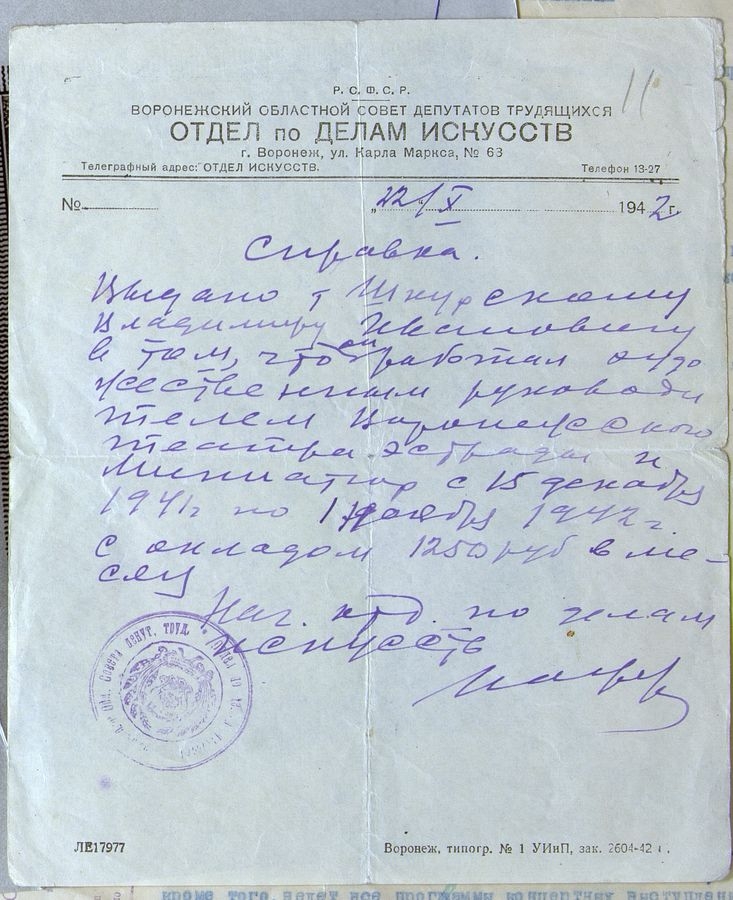 11
Р. С. Ф. С. Р.
ВОРОНЕЖСКИЙ ОБЛАСТНОЙ СОВЕТ ДЕПУТАТОВ ТРУДЯЩИХСЯ
ОТДЕЛ по ДЕЛАМ ИСКУССТВ
г. Воронеж, ул. Карла Маркса, № 63
Телеграфный адрес: ОТДЕЛ ИСКУССТВ. Телефон 13-27
№ „22/X 1942 г.
Справка.
Выдано т Шкурскому
Владимиру Ивановичу
в том, что он работал худо
жественным руководи
телем Воронежского
театра эстрады и
Миниатюр с 15 декабря
1941г по 1 ноября 1942 г.
с окладом 1250 руб в ме-
сяц
Нач. отд. по делам
искусств
ЛЕ17977
Воронеж, типогр. № 1 УИиП, зак. 2604-42 г.
кроме того ведет все программы концертных выступлений